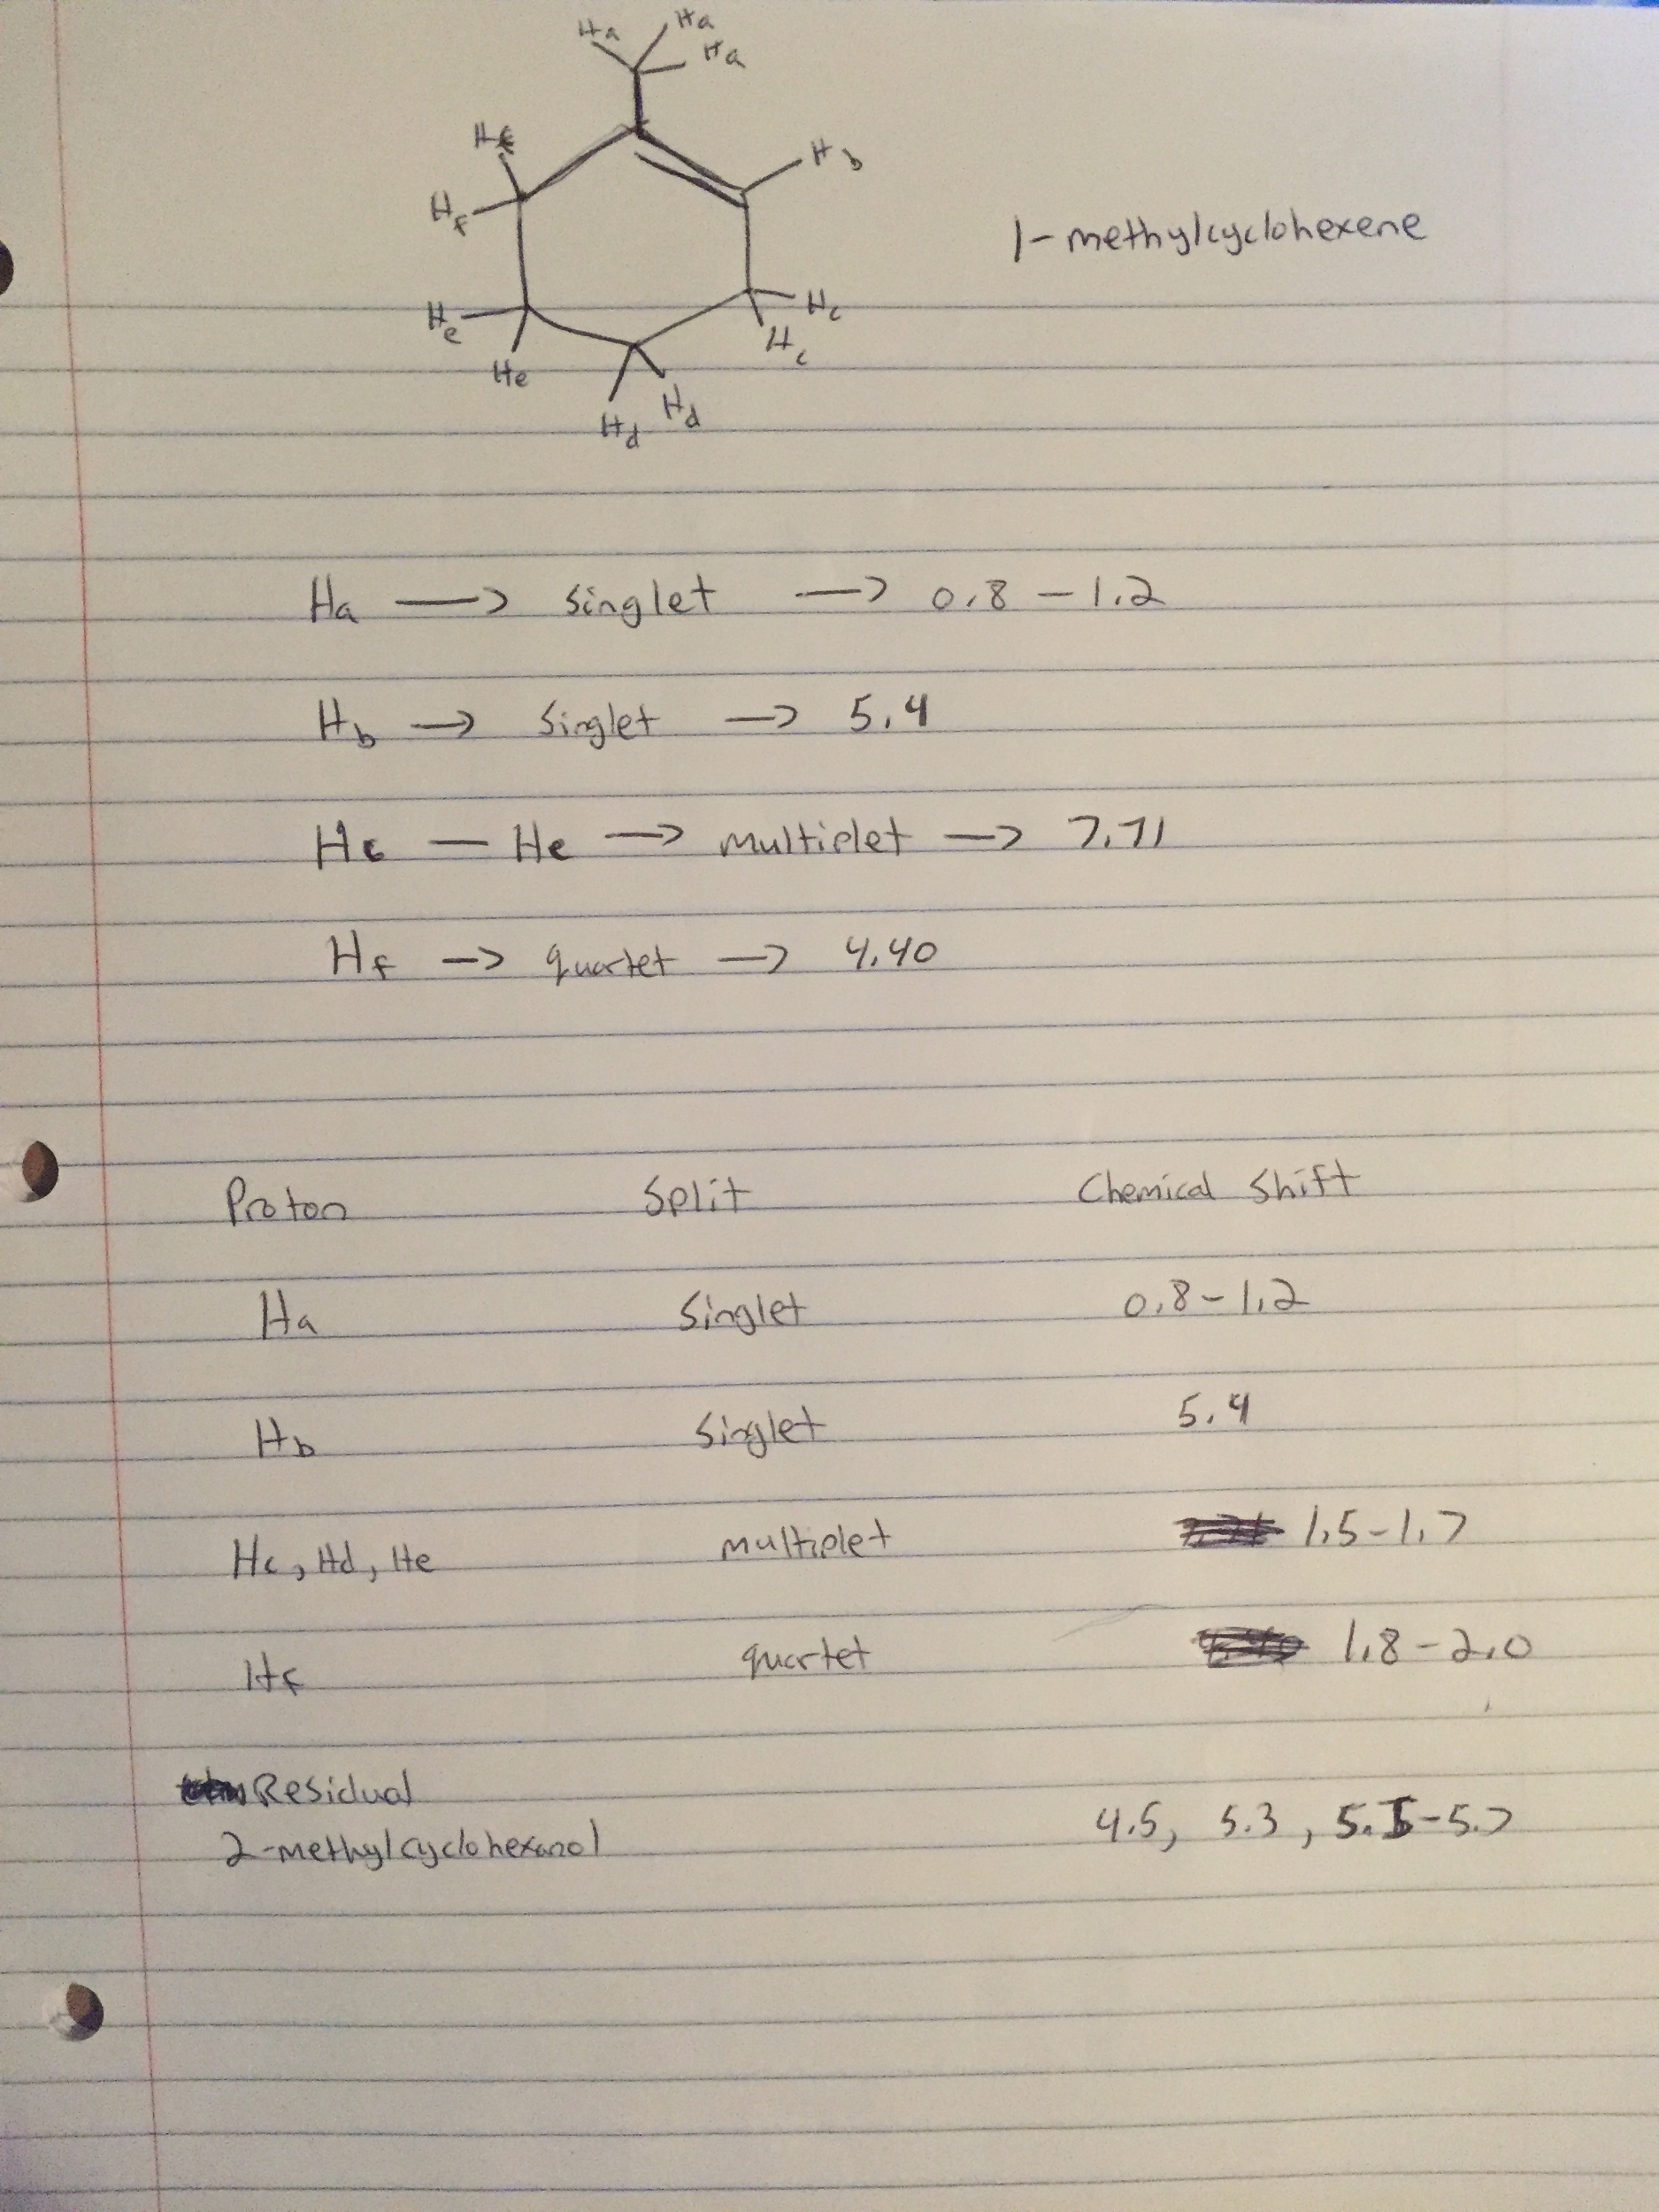 Ha Ha
Ha
Hf Hb
Hf
1-methylcyclohexene
He Hc
Hc
He
Hd Hd
Ha —> singlet —> 0.8 - 1.2
Hb -> singlet -> 5.4
Hc - He -> multiplet -> 7.71
Hf -> quartet -> 4.40
Proton Split Chemical Shift
Ha Singlet 0.8-1.2
Hb Singlet 5.4
Hc, Hd, He multiplet 1.5-1.7
Hf quartet 1.8-2.0
Residual
2-methylcyclohexanol 4.5, 5.3, 5.5-5.7